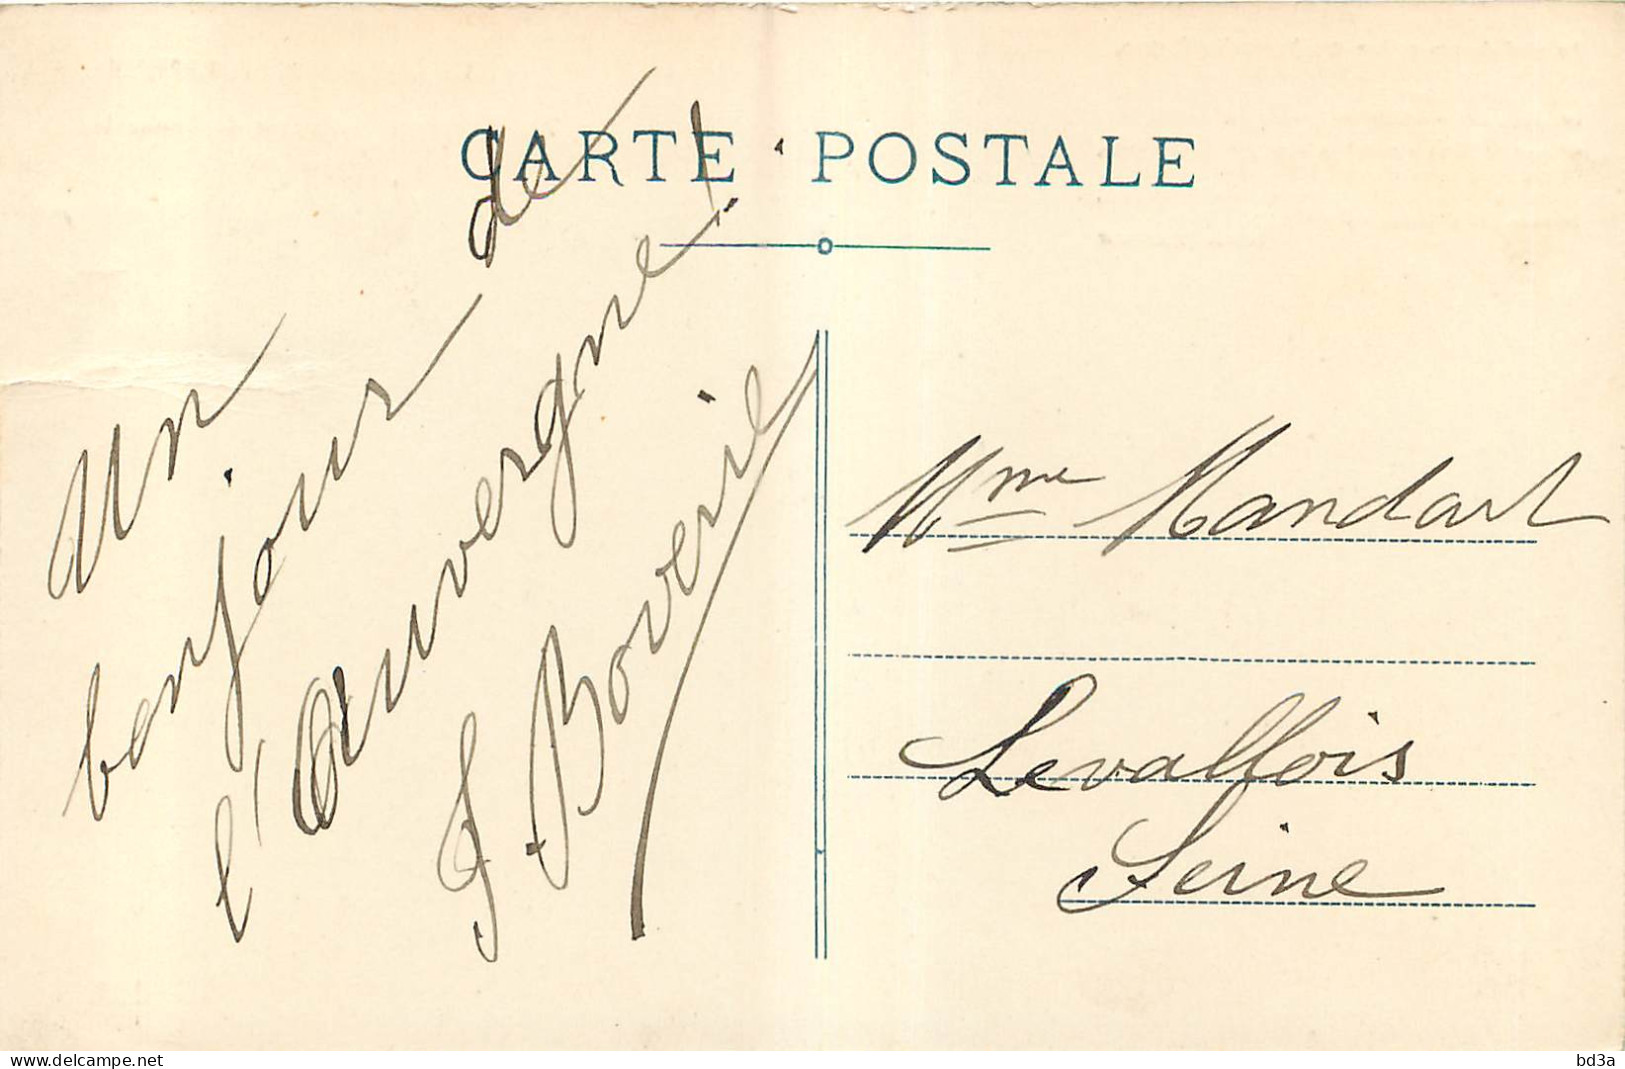 CARTE POSTALE
Un
bonjour de
l'Auvergne!
J. Boverie
Mme Mandart
Levallois
Seine
www.delcampe.net
bd3a